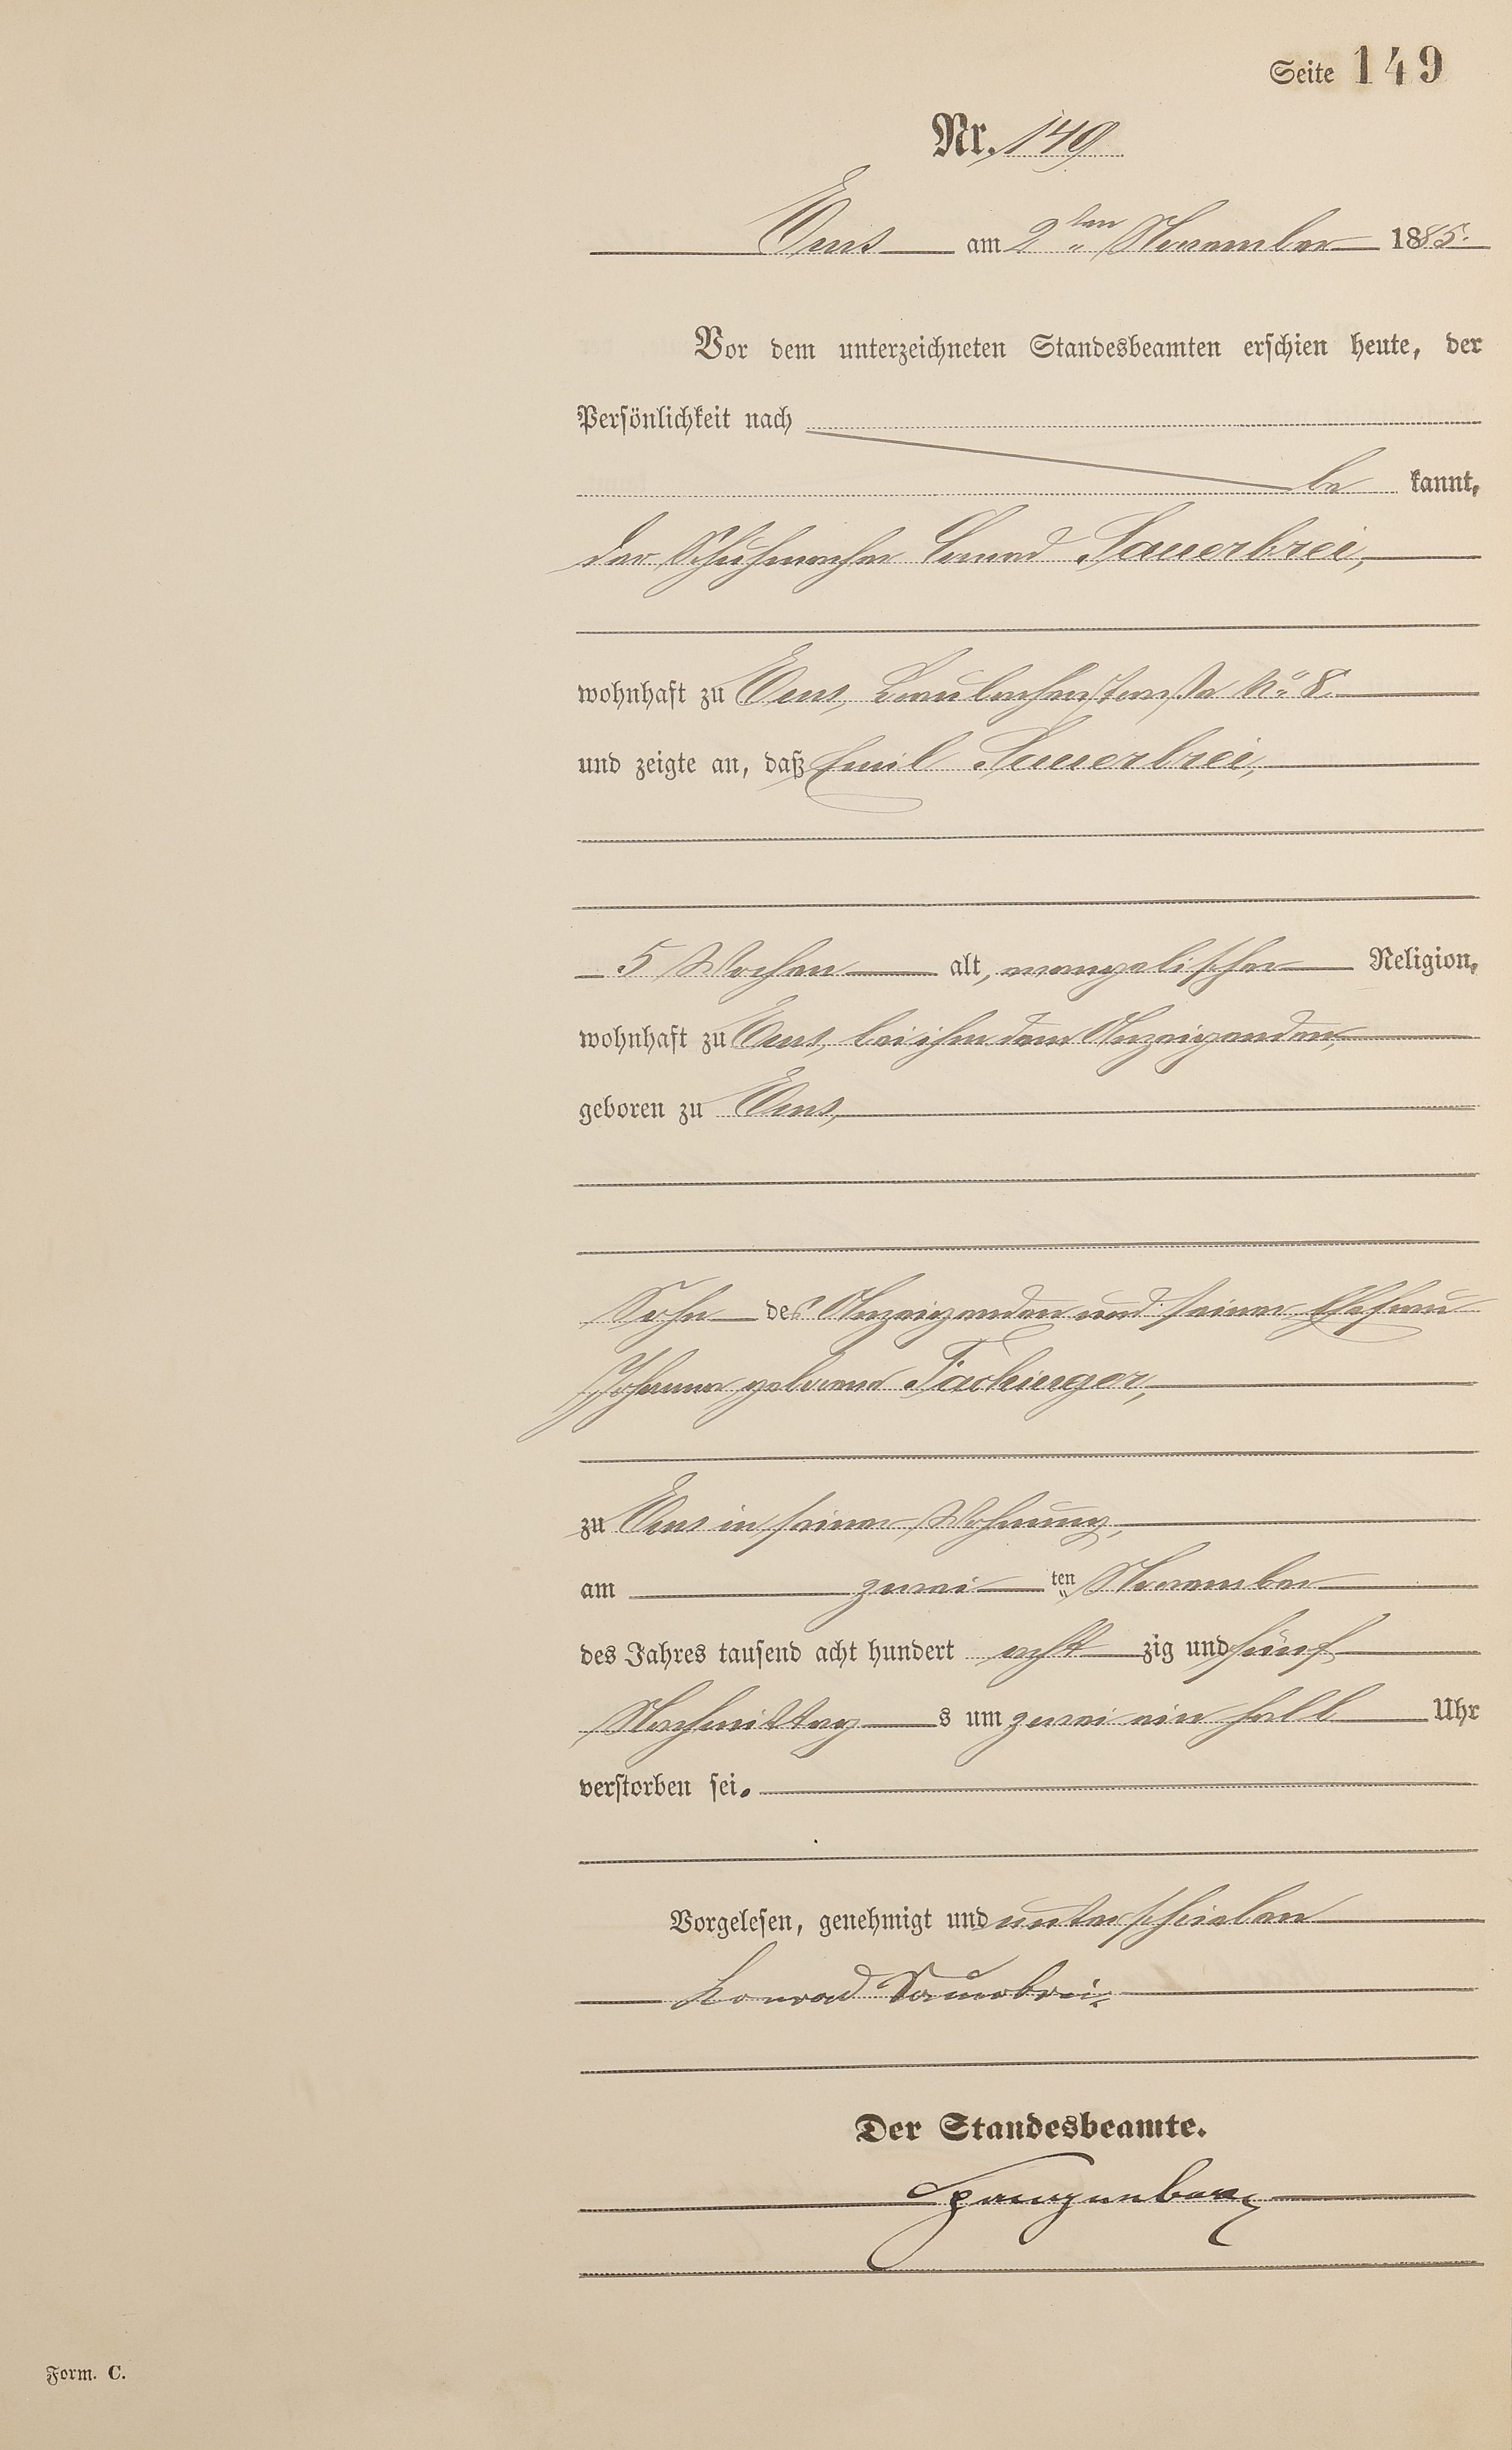 Seite 149
Nr. 149
Ems am 2ten November 1885.
Vor dem unterzeichneten Standesbeamten erschien heute, der
Persönlichkeit nach
be kannt,
der Schuhmacher Conrad Sauerbrei,
wohnhaft zu Ems, Braubacherstraße No 8.
und zeigte an, daß Emil Sauerbrei,
5 Wochen alt, evangelischer Religion,
wohnhaft zu Ems, bei ihm dem Anzeigenden,
geboren zu Ems,
Sohn des Anzeigenden und seiner Ehefrau
Johanna geborene Fachinger,
zu Ems in seiner Wohnung,
am zwei ten November
des Jahres tausend acht hundert acht zig und fünf
Nachmittag s um zwei ein halb Uhr
verstorben sei.
Vorgelesen, genehmigt und unterschrieben
Konrad Sauerbrei.
Der Standesbeamte.
Spangenberg
Form. C.